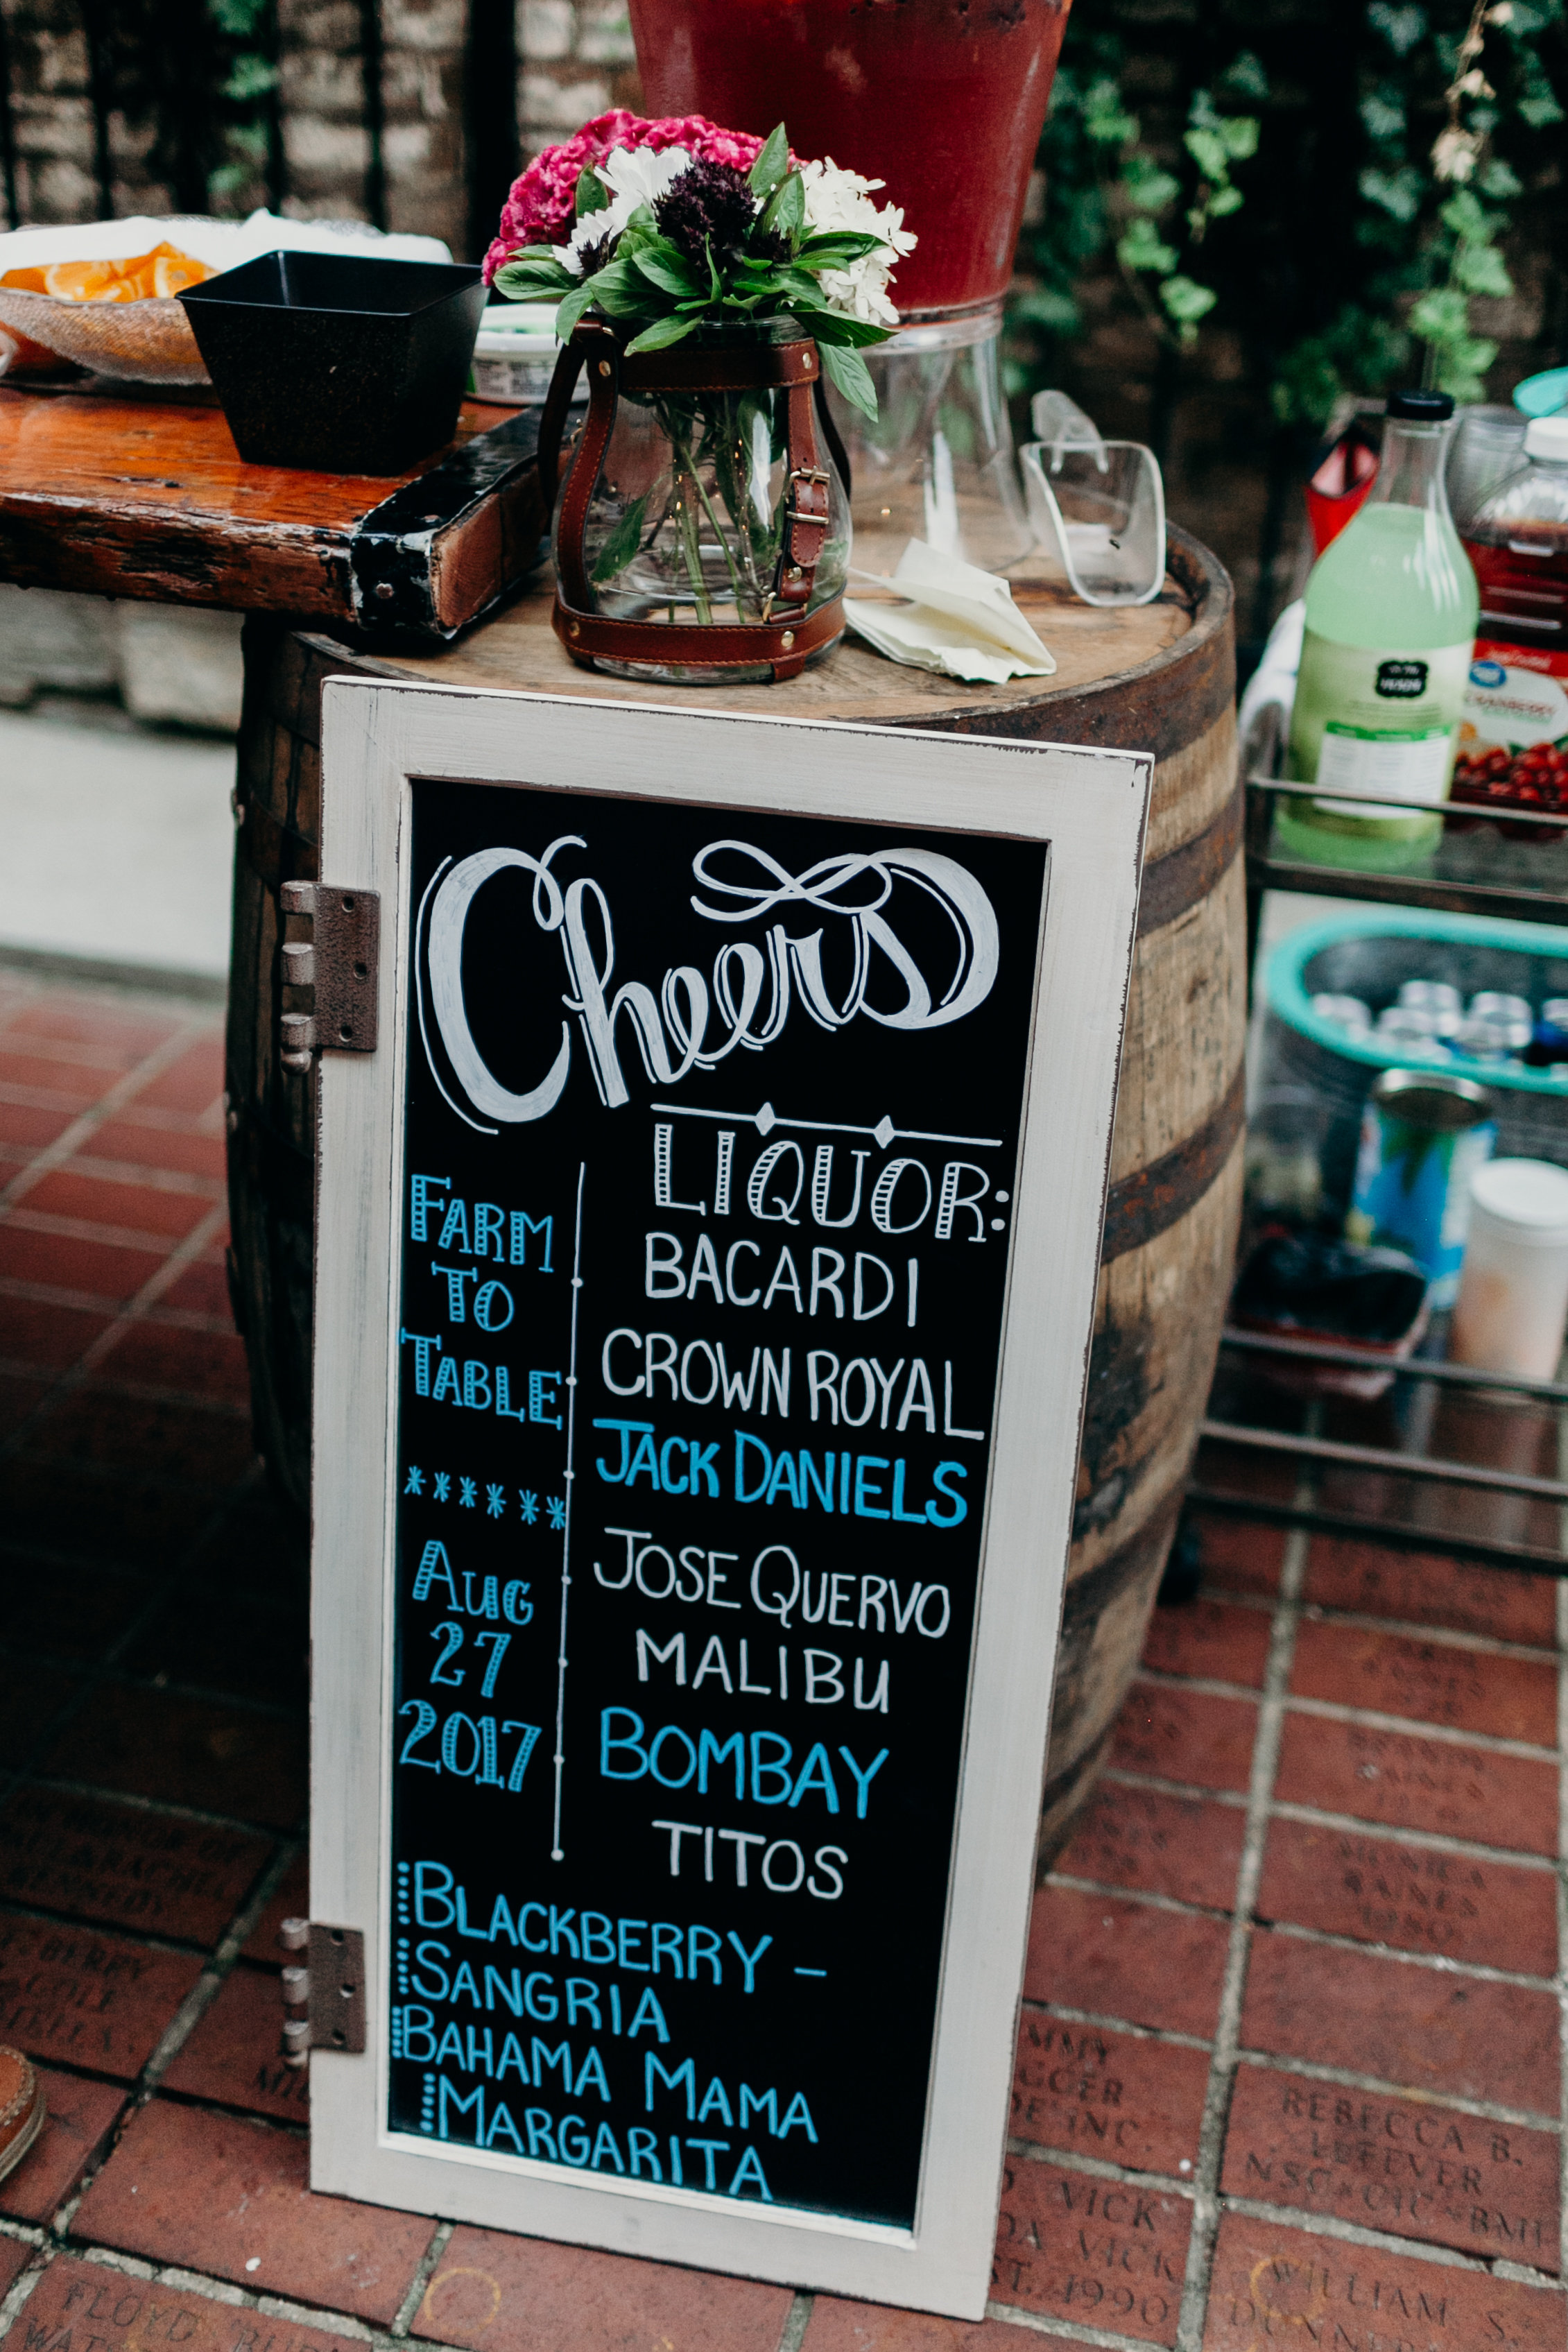 Cheers
LIQUOR:
BACARDI
CROWN ROYAL
JACK DANIELS
JOSE QUERVO
MALIBU
BOMBAY
TITOS
FARM
TO
TABLE
******
AUG
27
2017
BLACKBERRY –
SANGRIA
BAHAMA MAMA
MARGARITA
CRANBERRY
REBECCA B.
LEFEVER
VICK
VICK
1990
WILLIAM S.
FLOYD